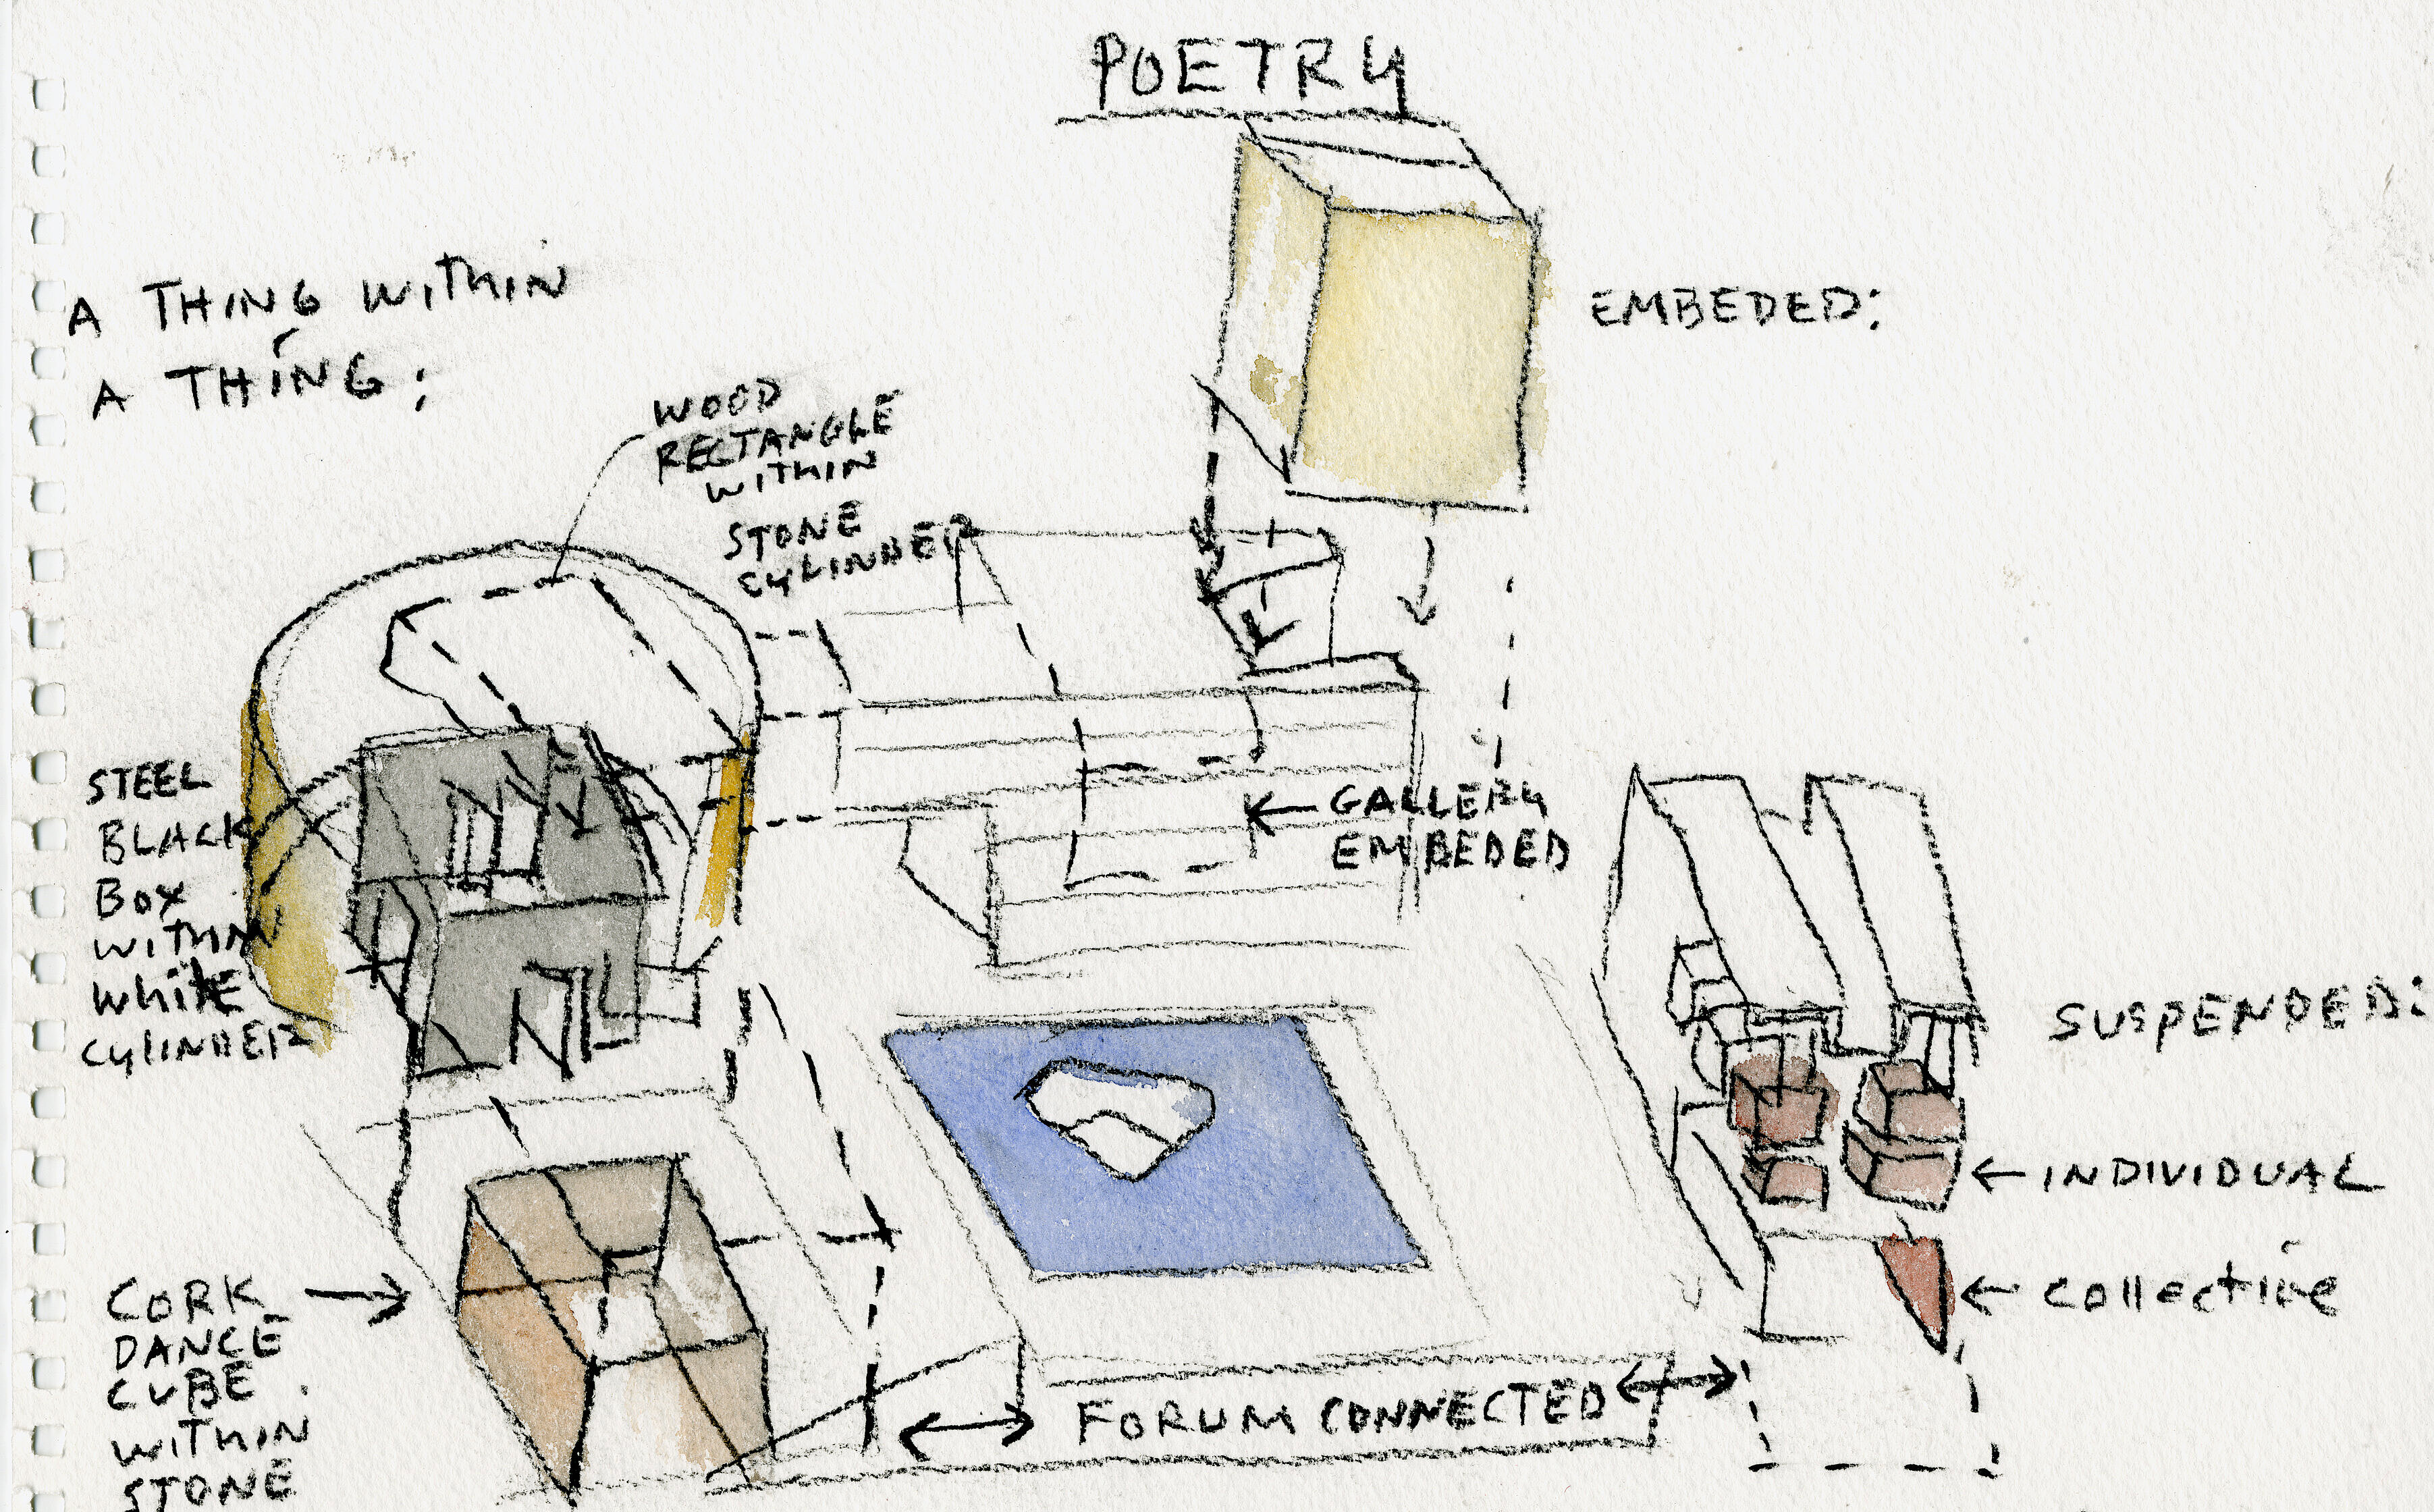 POETRY
A THING WITHIN
A THING:
EMBEDED:
WOOD
RECTANGLE
WITHIN
STONE
CYLINDER
STEEL
BLACK
BOX
WITHIN
WHITE
CYLINDER
GALLERY
EMBEDED
SUSPENDED:
INDIVIDUAL
COLLECTIVE
CORK
DANCE
CUBE
WITHIN
STONE
FORUM CONNECTED